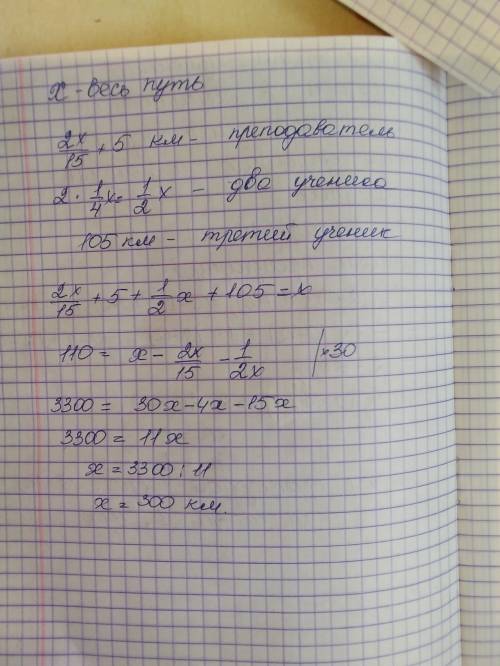 x - весь путь
2x/15 + 5 км - преподаватель
2 · 1/4x = 1/2 x - два ученика
105 км - третий ученик
2x/15 + 5 + 1/2 x + 105 = x
110 = x - 2x/15 - 1/2x | ×30
3300 = 30x - 4x - 15x
3300 = 11x
x = 3300 : 11
x = 300 км.